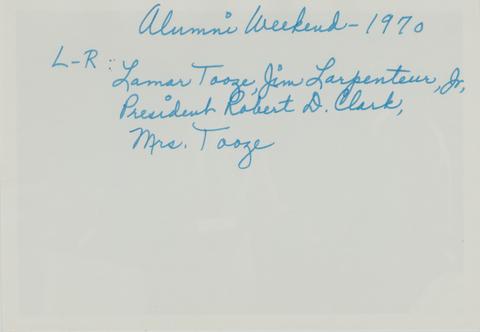 Alumni Weekend - 1970
L-R: Lamar Tooze, Jim Larpenteur, Jr,
President Robert D. Clark,
Mrs. Tooze